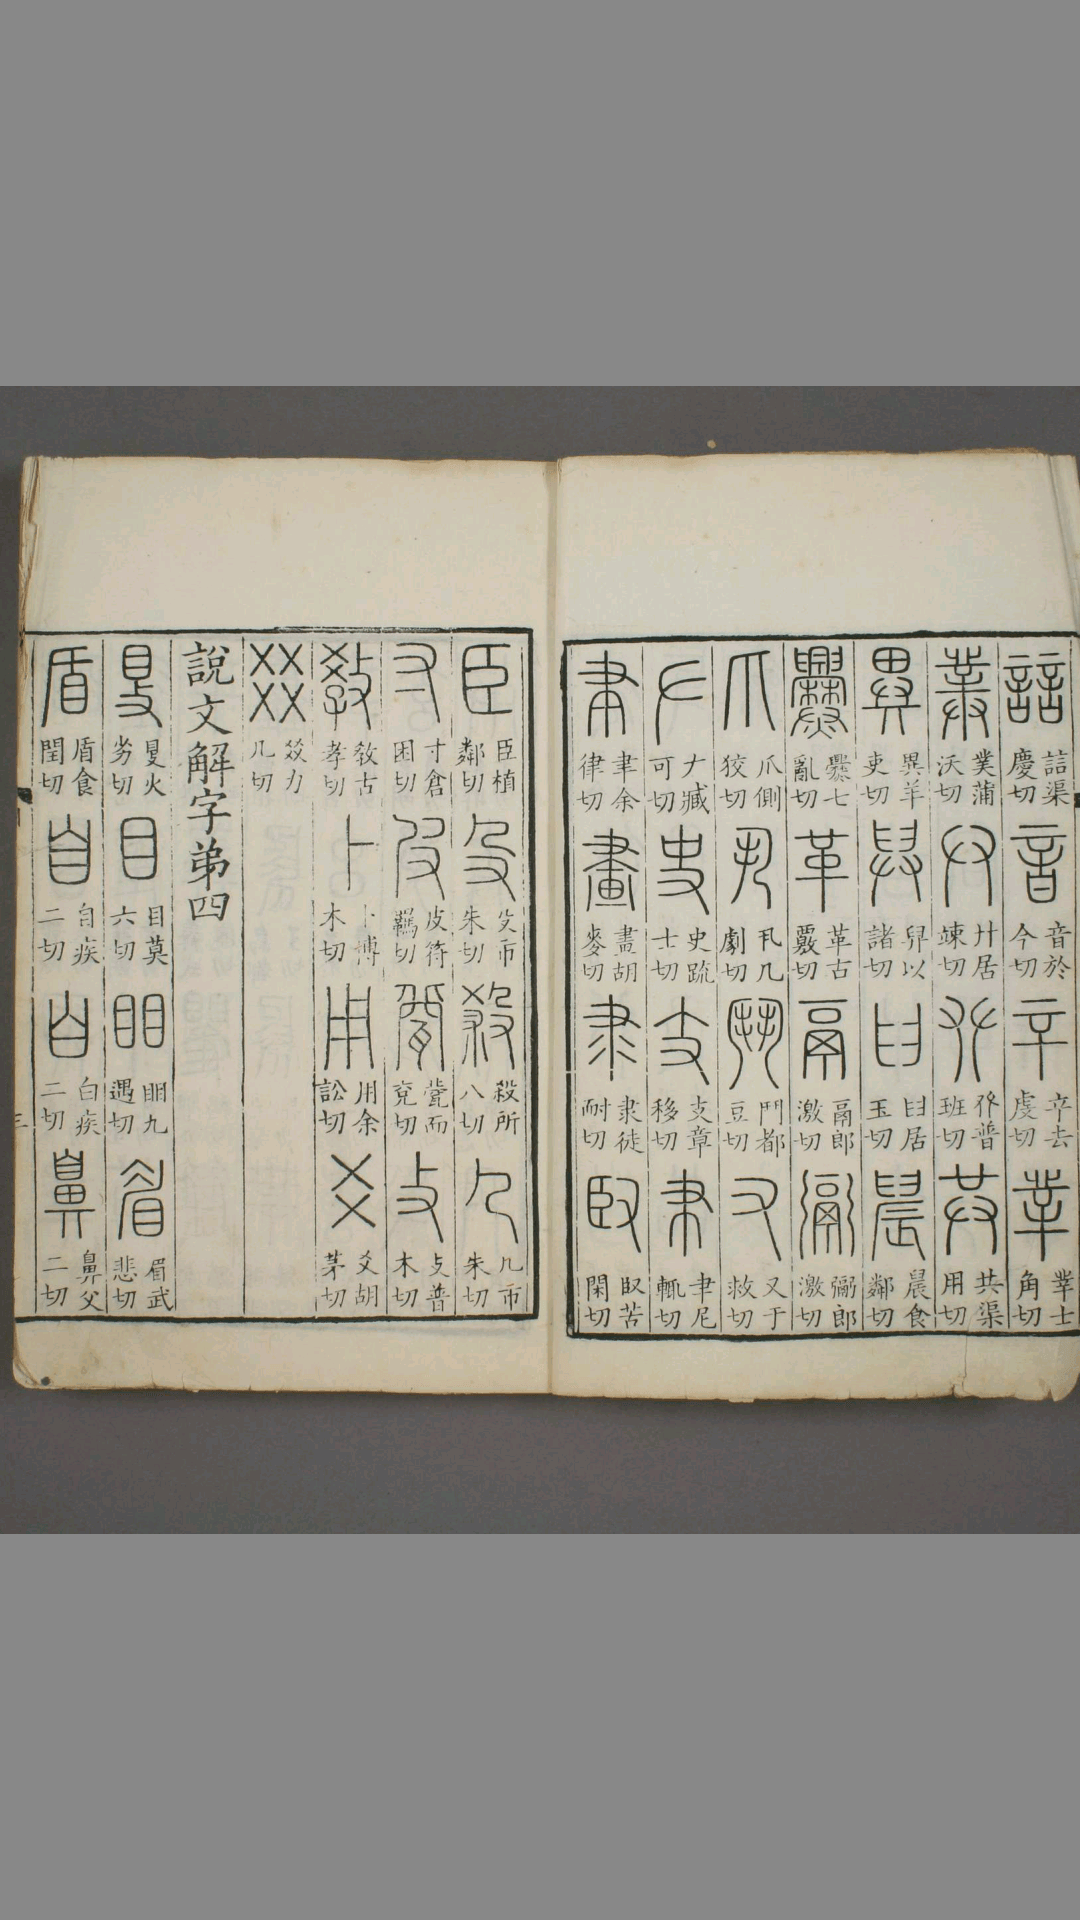 誩 誩渠慶切 音 音於今切 䇂 䇂去虔切 丵 丵士角切
菐 菐蒲沃切 廾 廾居竦切 𠬜 𠬜普班切 共 共渠用切
異 異羊吏切 舁 舁以諸切 𦥑 𦥑居玉切 晨 晨食鄰切
爨 爨七亂切 革 革古覈切 鬲 鬲郎激切 䰜 䰜郎激切
爪 爪側狡切 丮 丮几劇切 鬥 鬥都豆切 又 又于救切
𠂇 𠂇臧可切 史 史疏士切 支 支章移切 𦘒 𦘒尼輒切
聿 聿余律切 畫 畫胡麥切 隶 隶徒耐切 臤 臤苦閑切
臣 臣植鄰切 殳 殳市朱切 殺 殺所八切 𠘧 𠘧市朱切
寸 寸倉困切 皮 皮符羈切 㼱 㼱而兗切 攴 攴普木切
教 教古孝切 卜 卜博木切 用 用余訟切 爻 爻胡茅切
㸚 㸚力几切
說文解字弟四
𥄎 𥄎火劣切 目 目莫六切 䀠 䀠九遇切 眉 眉武悲切
盾 盾食閏切 自 自疾二切 白 白疾二切 鼻 鼻父二切
三